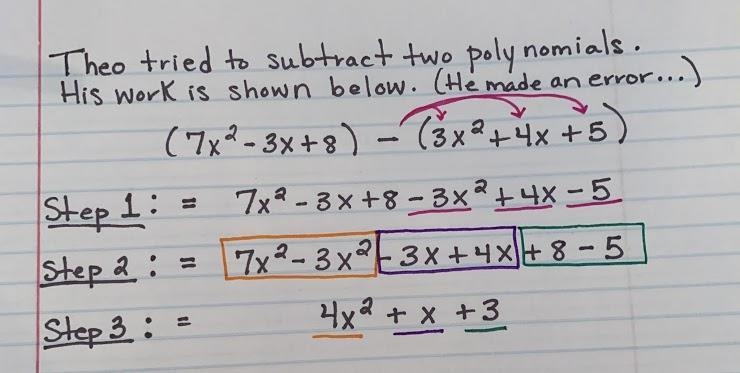 Theo tried to subtract two polynomials.
His work is shown below. (He made an error...)
(7x² - 3x + 8) - (3x² + 4x + 5)
Step 1: = 7x² - 3x + 8 - 3x² + 4x - 5
Step 2: = 7x² - 3x² - 3x + 4x + 8 - 5
Step 3: = 4x² + x + 3